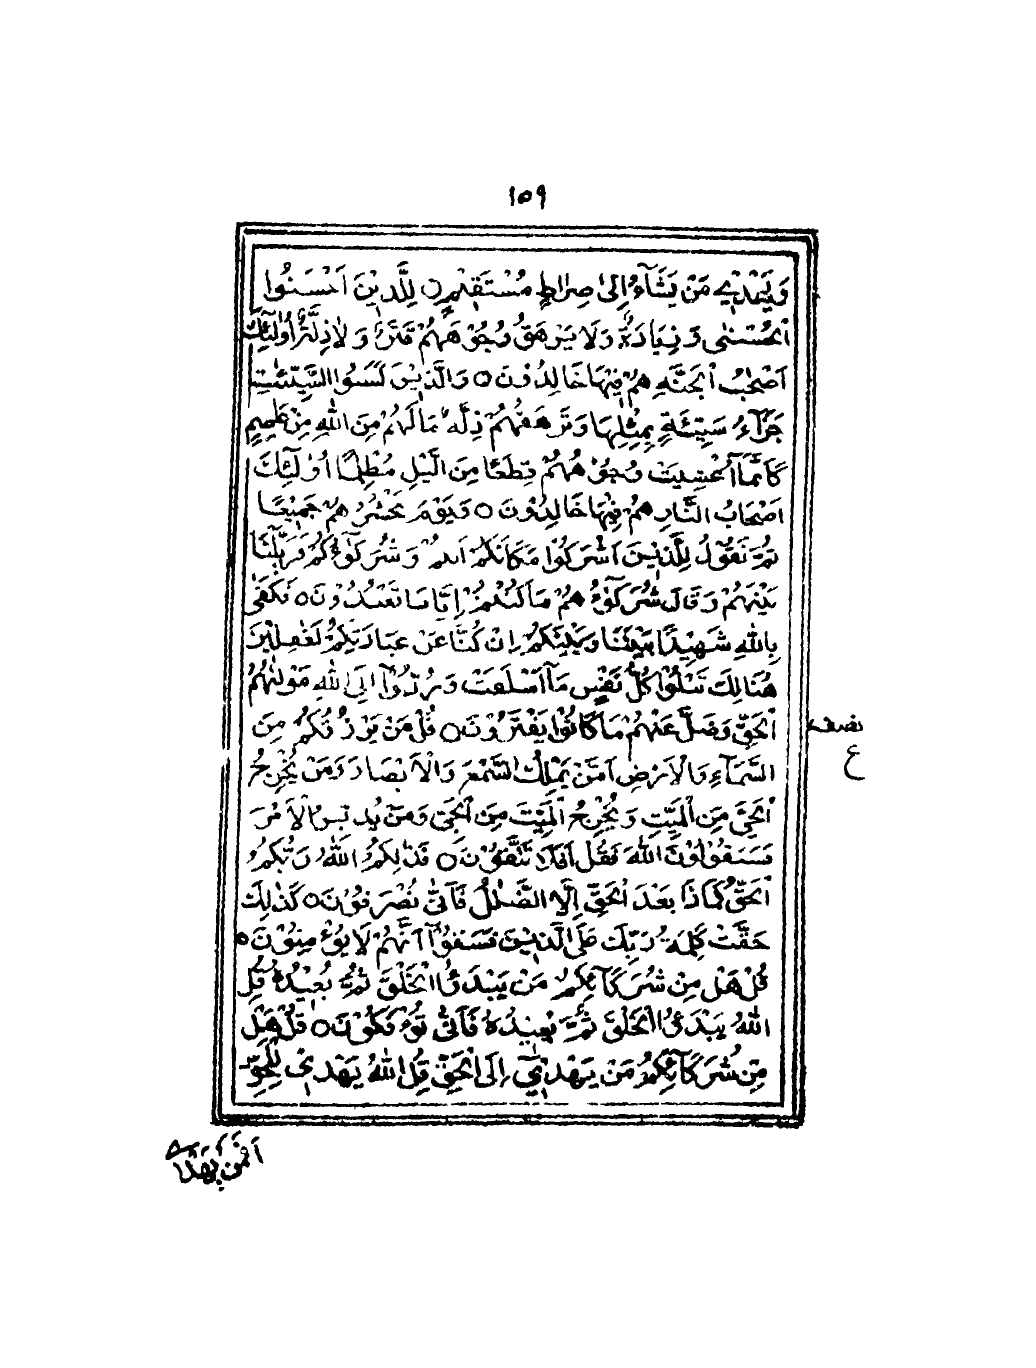 ١٥٩
وَيَهْدِي مَنْ يَشَآءُ اِلىٰ صِرَاطٍ مُسْتَقِيْمٍ ۝ لِلَّذِيْنَ اَحْسَنُوا
الْحُسْنٰى وَزِيَادَةٌ وَلَا يَرْهَقُ وُجُوْهَهُمْ قَتَرٌ وَلَا ذِلَّةٌ اُولٰئِكَ
اَصْحٰبُ الْجَنَّةِ هُمْ فِيْهَا خَالِدُوْنَ ۝ وَالَّذِيْنَ كَسَبُوا السَّيِّئٰتِ
جَزَآءُ سَيِّئَةٍ بِمِثْلِهَا وَتَرْهَقُهُمْ ذِلَّةٌ مَا لَهُمْ مِنَ اللّٰهِ مِنْ عَاصِمٍ
كَاَنَّمَآ اُغْشِيَتْ وُجُوْهُهُمْ قِطَعًا مِنَ الَّيْلِ مُظْلِمًا اُولٰئِكَ
اَصْحَابُ النَّارِ هُمْ فِيْهَا خَالِدُوْنَ ۝ وَيَوْمَ نَحْشُرُهُمْ جَمِيْعًا
ثُمَّ نَقُوْلُ لِلَّذِيْنَ اَشْرَكُوْا مَكَانَكُمْ اَنْتُمْ وَشُرَكَآؤُكُمْ فَزَيَّلْنَا
بَيْنَهُمْ وَقَالَ شُرَكَآؤُهُمْ مَا كُنْتُمْ اِيَّانَا تَعْبُدُوْنَ ۝ فَكَفٰى
بِاللّٰهِ شَهِيْدًا بَيْنَنَا وَبَيْنَكُمْ اِنْ كُنَّا عَنْ عِبَادَتِكُمْ لَغٰفِلِيْنَ
هُنَالِكَ تَبْلُوْا كُلُّ نَفْسٍ مَآ اَسْلَفَتْ وَرُدُّوْٓا اِلَى اللّٰهِ مَوْلٰىهُمُ
الْحَقِّ وَضَلَّ عَنْهُمْ مَا كَانُوْا يَفْتَرُوْنَ ۝ قُلْ مَنْ يَرْزُقُكُمْ مِنَ
السَّمَآءِ وَالْاَرْضِ اَمَّنْ يَمْلِكُ السَّمْعَ وَالْاَبْصَارَ وَمَنْ يُخْرِجُ
الْحَيَّ مِنَ الْمَيِّتِ وَيُخْرِجُ الْمَيِّتَ مِنَ الْحَيِّ وَمَنْ يُدَبِّرُ الْاَمْرَ
فَسَيَقُوْلُوْنَ اللّٰهُ فَقُلْ اَفَلَا تَتَّقُوْنَ ۝ فَذٰلِكُمُ اللّٰهُ رَبُّكُمُ
الْحَقُّ فَمَاذَا بَعْدَ الْحَقِّ اِلَّا الضَّلٰلُ فَاَنّٰى تُصْرَفُوْنَ ۝ كَذٰلِكَ
حَقَّتْ كَلِمَةُ رَبِّكَ عَلَى الَّذِيْنَ فَسَقُوْٓا اَنَّهُمْ لَا يُؤْمِنُوْنَ ۝
قُلْ هَلْ مِنْ شُرَكَآئِكُمْ مَنْ يَبْدَؤُا الْخَلْقَ ثُمَّ يُعِيْدُهٗ قُلِ
اللّٰهُ يَبْدَؤُا الْخَلْقَ ثُمَّ يُعِيْدُهٗ فَاَنّٰى تُؤْفَكُوْنَ ۝ قُلْ هَلْ
مِنْ شُرَكَآئِكُمْ مَنْ يَهْدِيْٓ اِلَى الْحَقِّ قُلِ اللّٰهُ يَهْدِيْ لِلْحَقِّ
نصف
ع
اَفَمَنْ يَهْدِيْ